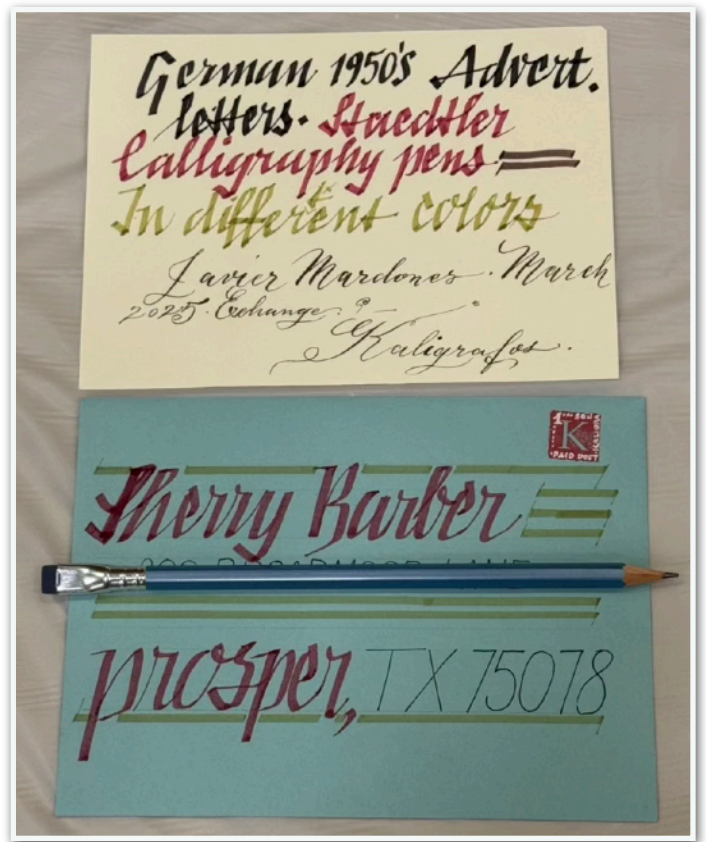 German 1950's Advert.
letters. Staedtler
Calligraphy pens
In different colors
Javier Mardones. March
2025. Exchange.
Kaligrafos.
K
Sherry Barber
prosper, TX 75078